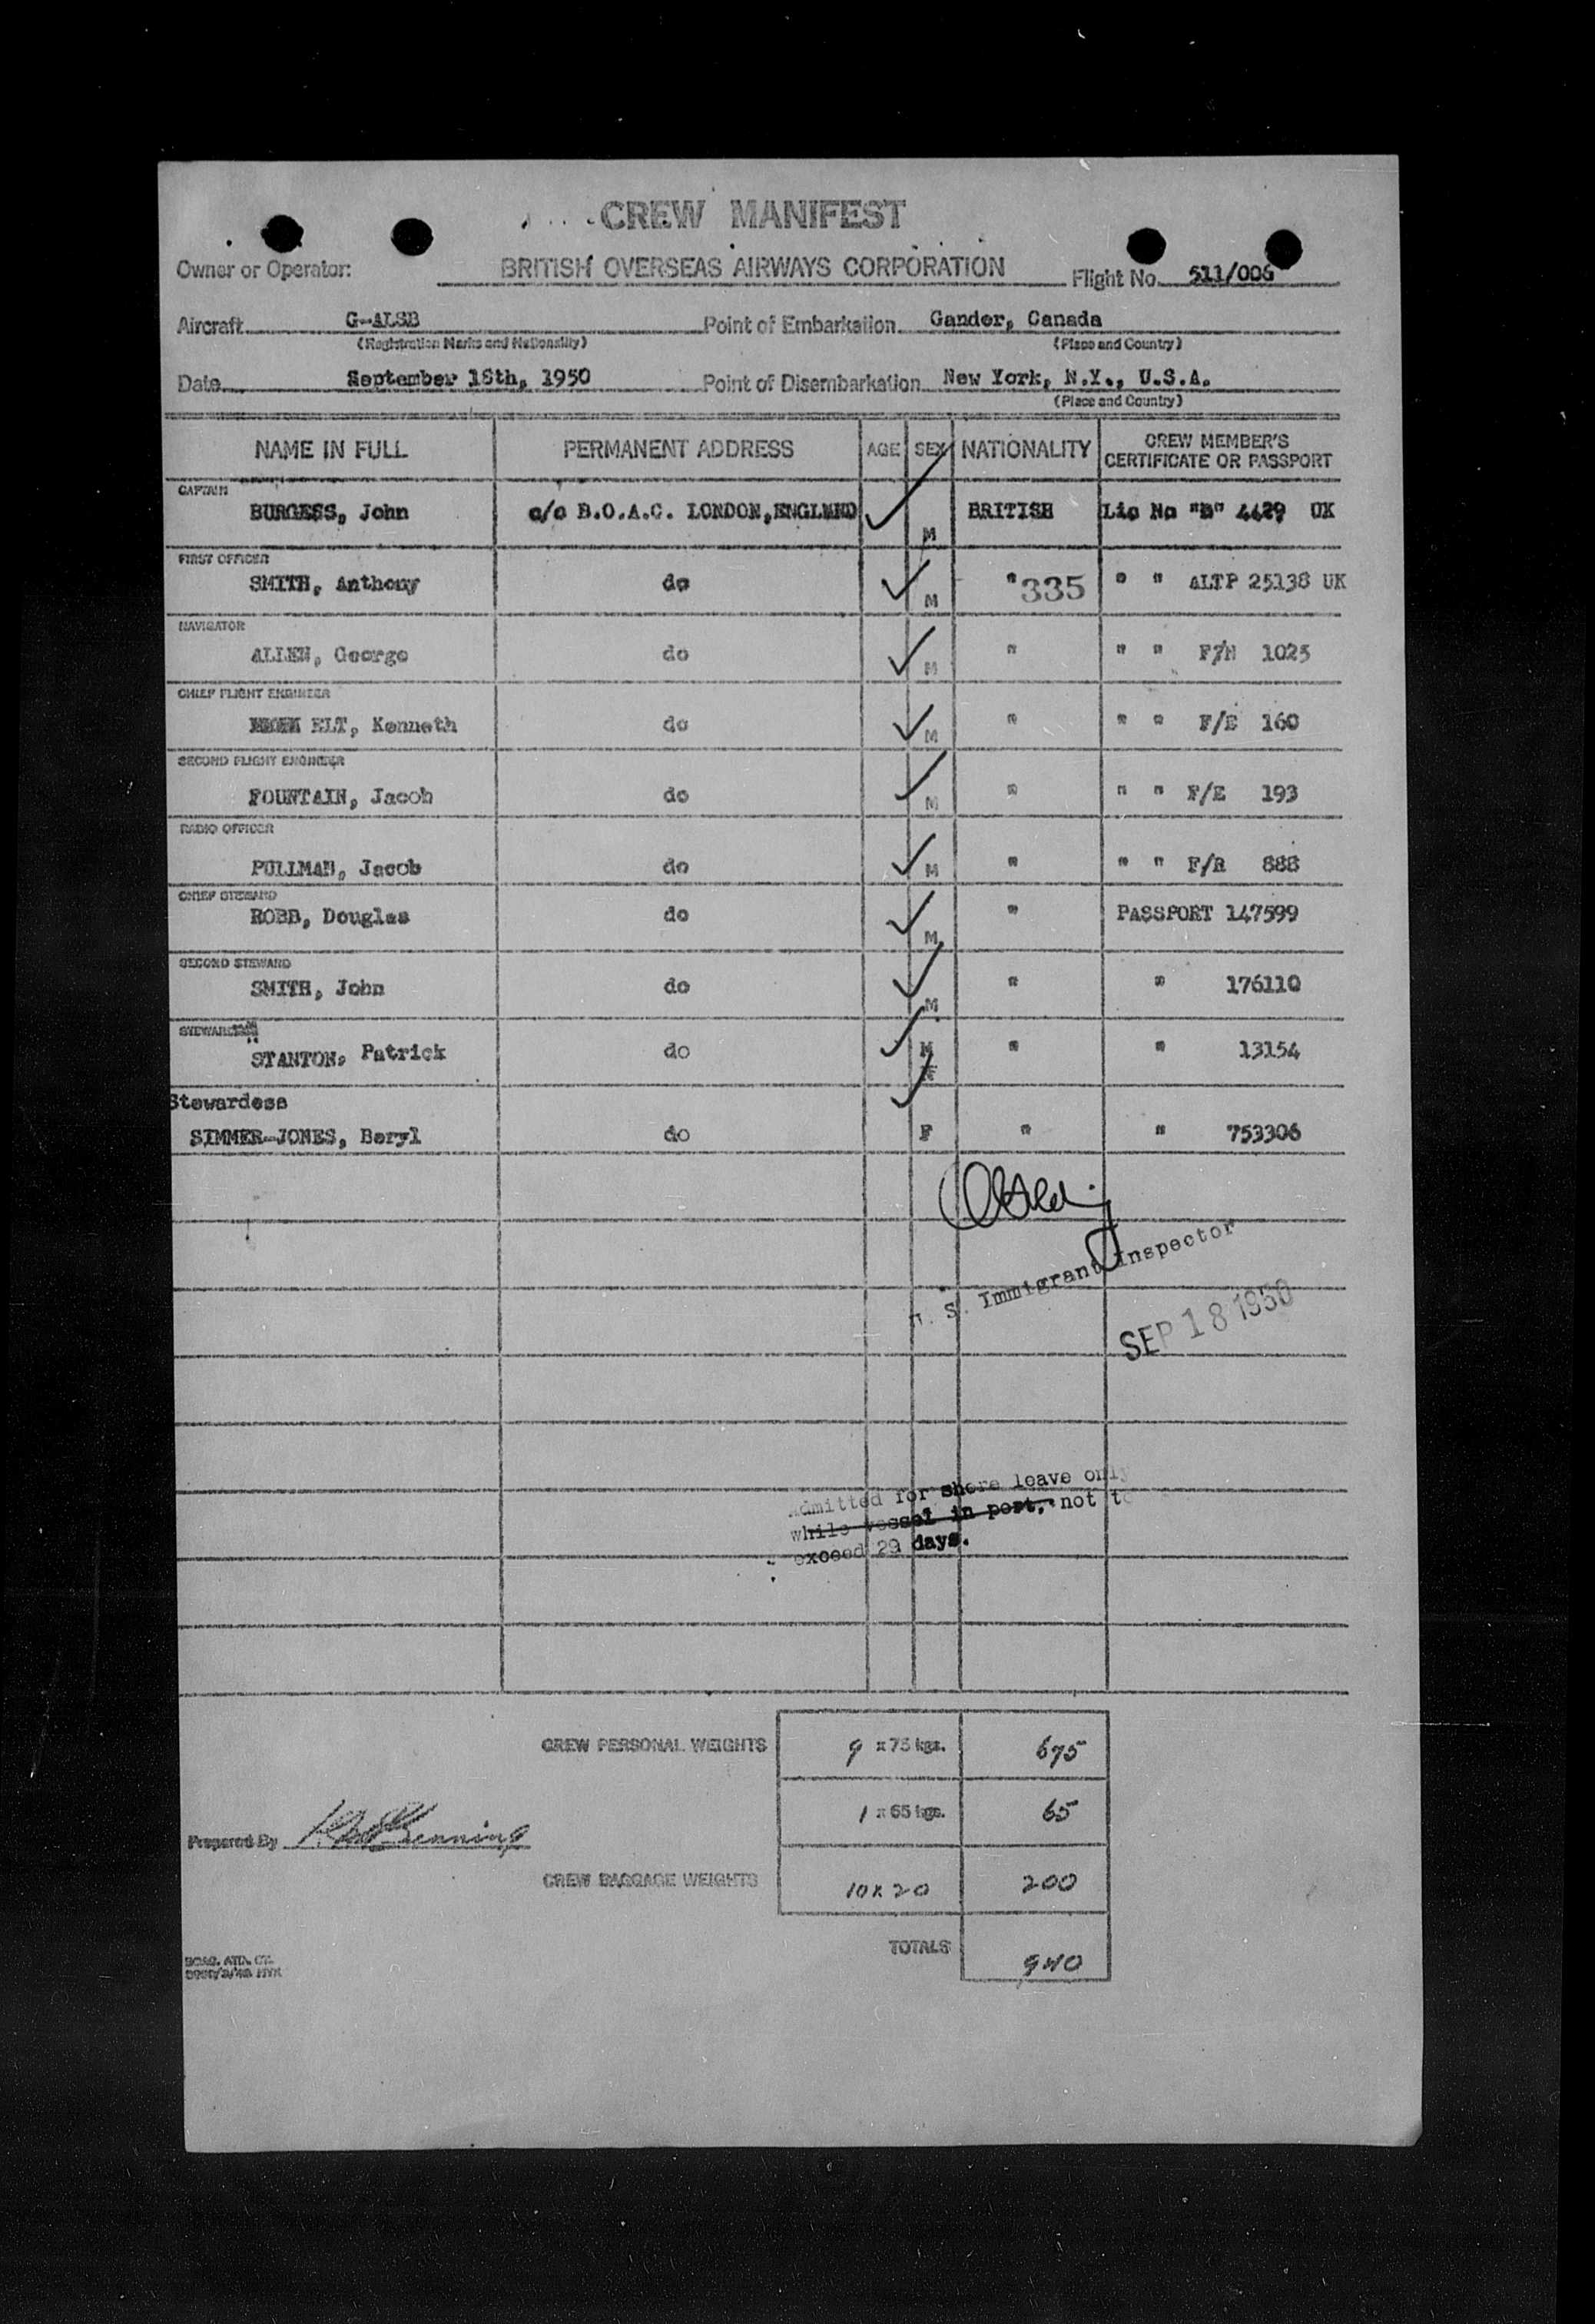 CREW MANIFEST
Owner or Operator: BRITISH OVERSEAS AIRWAYS CORPORATION Flight No. 511/006
Aircraft G-ALSB Point of Embarkation Gander, Canada
(Registration Marks and Nationality) (Place and Country)
Date September 18th, 1950 Point of Disembarkation New York, N.Y., U.S.A.
(Place and Country)
NAME IN FULL PERMANENT ADDRESS AGE SEX NATIONALITY CREW MEMBER'S CERTIFICATE OR PASSPORT
CAPTAIN
BURGESS, John c/o B.O.A.C. LONDON, ENGLMND M BRITISH Lic No "B" 4429 UK
FIRST OFFICER
SMITH, Anthony do M " 335 " " ALTP 25138 UK
NAVIGATOR
ALLEN, George do M " " " F/N 1025
CHIEF FLIGHT ENGINEER
ELT, Kenneth do M " " " F/E 160
SECOND FLIGHT ENGINEER
FOUNTAIN, Jacob do M " " " F/E 193
RADIO OFFICER
PULLMAN, Jacob do M " " " F/R 888
CHIEF STEWARD
ROBB, Douglas do M " PASSPORT 147599
SECOND STEWARD
SMITH, John do M " " 176110
STEWARD
STANTON, Patrick do M " " 13154
Stewardess
SIMMER-JONES, Beryl do F " " 753306
U. S. Immigrant Inspector
SEP 18 1950
Admitted for shore leave only
while vessel in port, not to
exceed 29 days.
CREW PERSONAL WEIGHTS 9 x 75 kgs. 675
1 x 65 kgs. 65
Prepared By
CREW BAGGAGE WEIGHTS 10 x 20 200
TOTALS 940